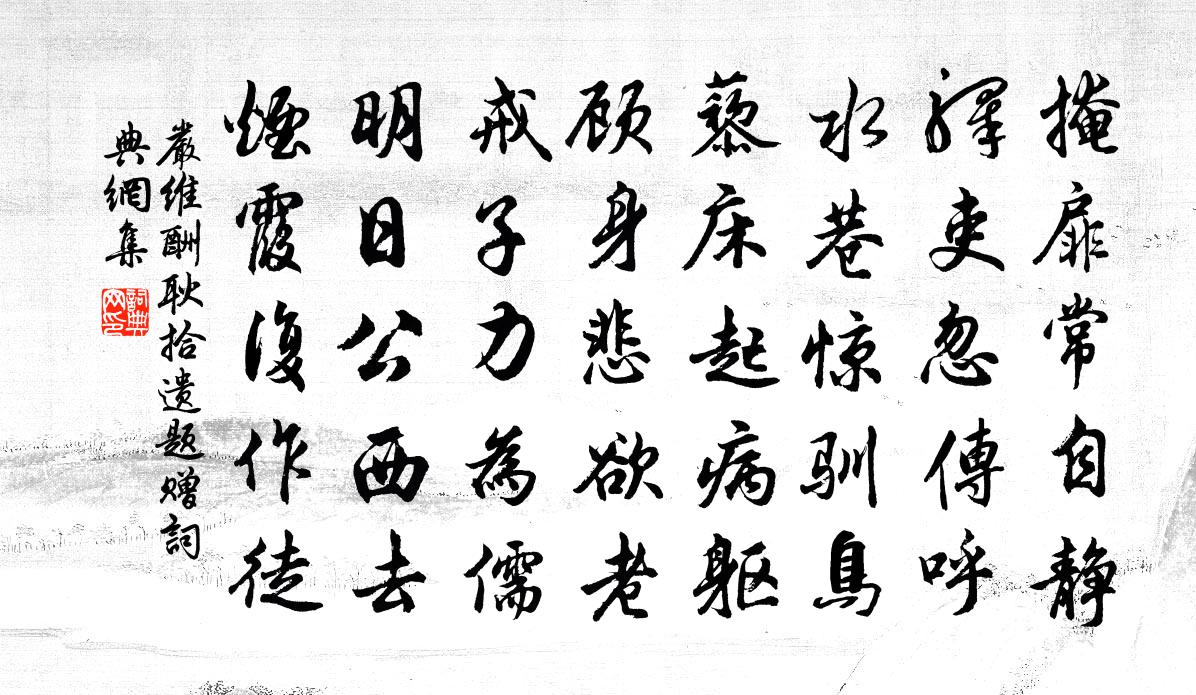 掩扉常自静
驿吏忽傳呼
水巷惊馴鳥
藜床起病躯
顾身悲欲老
戒子力為儒
明日公西去
煙霞復作徒
嚴維酬耿拾遗题赠詞
典網集
詞典网印